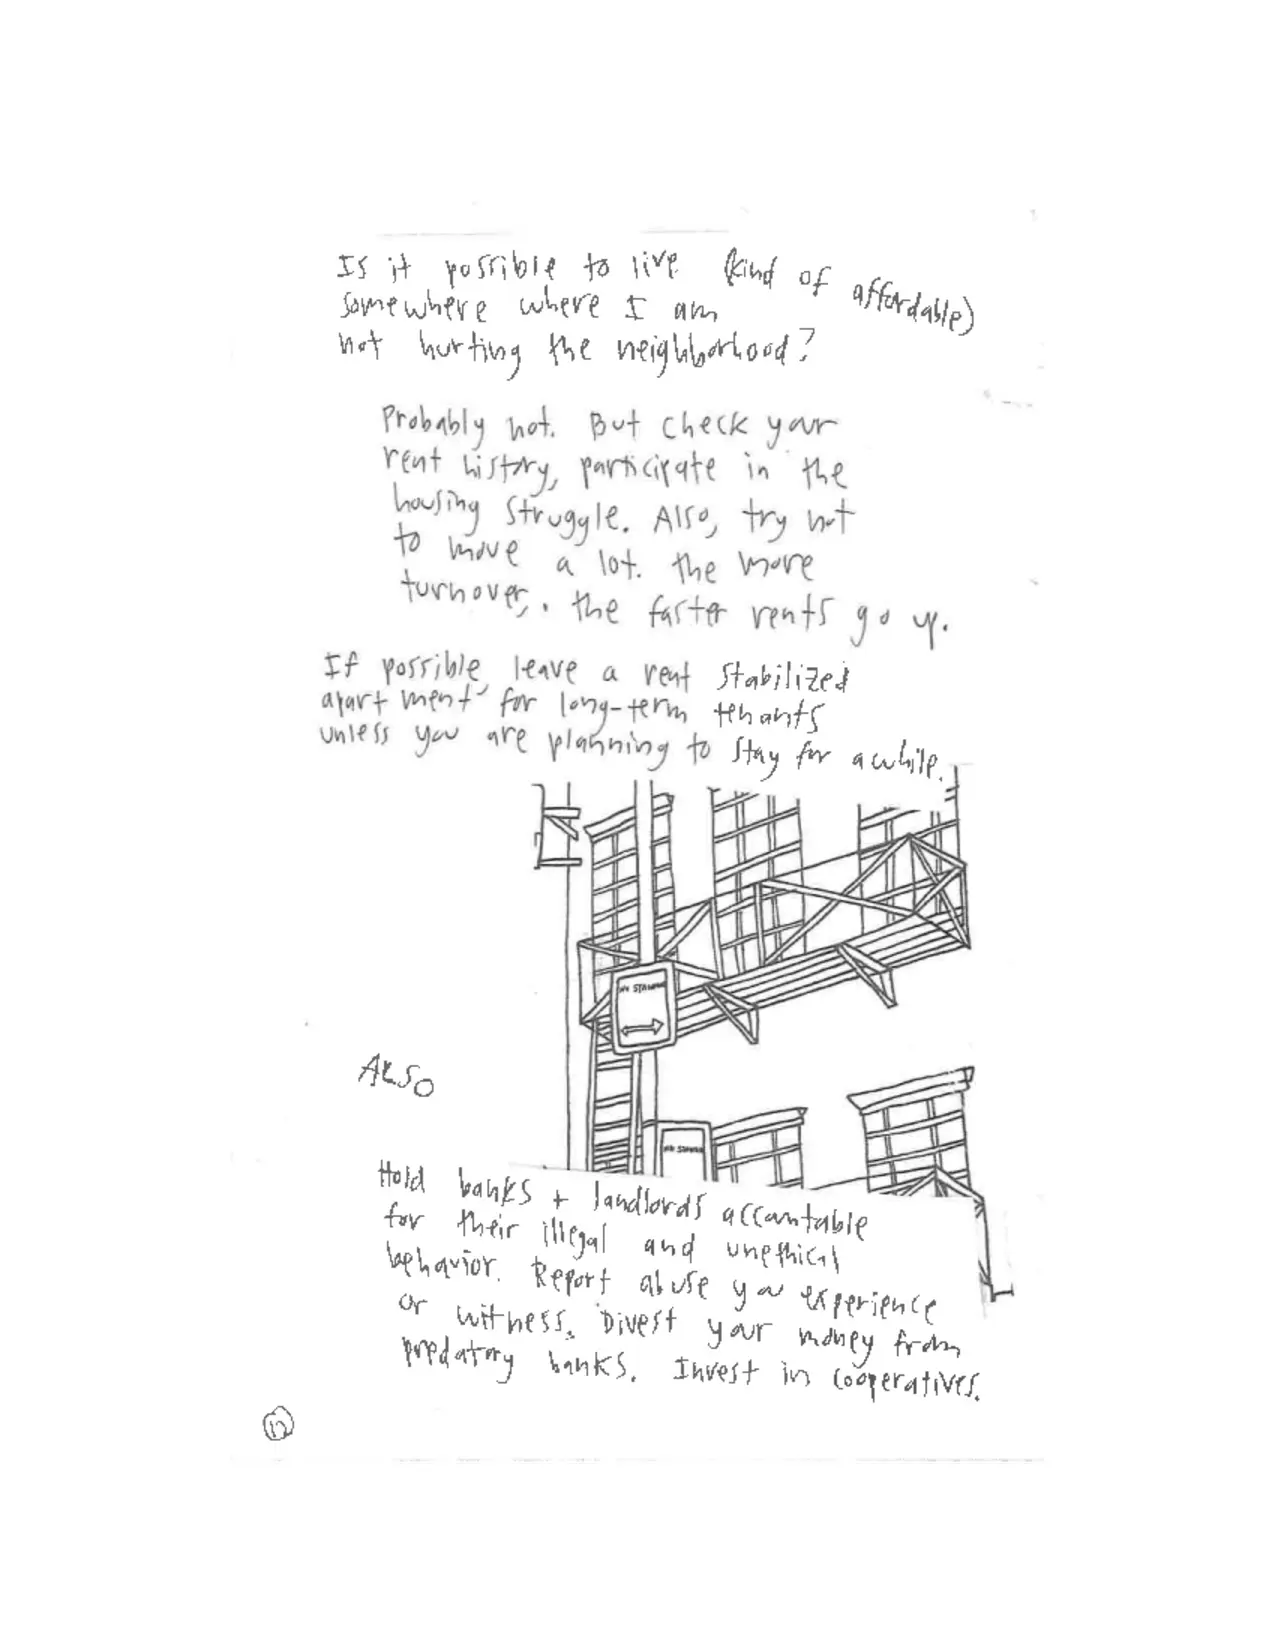 Is it possible to live (kind of affordable)
somewhere where I am
not hurting the neighborhood?
Probably not. But check your
rent history, participate in the
housing struggle. Also, try not
to move a lot. the more
turnover, . the faster rents go up.
If possible leave a rent stabilized
apartment for long-term tenants
unless you are planning to stay for awhile.
NO STANDING
ALSO
NO STANDING
Hold banks + landlords accountable
for their illegal and unethical
behavior. Report abuse you experience
or witness. Divest your money from
predatory banks. Invest in cooperatives.